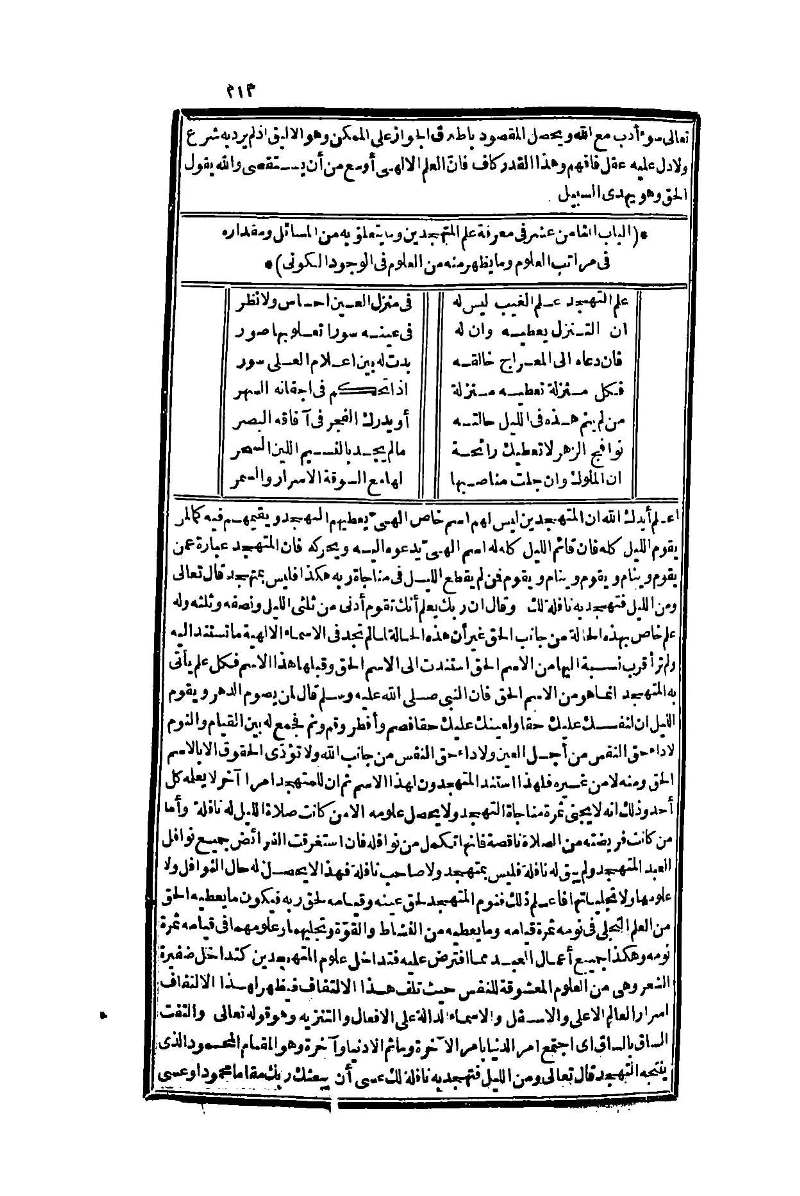 ٢١٣
تعالى سوء أدب مع الله ويحصل المقصود باطلاق الجواز على الممكن وهو الاليق اذ لم يرد به شرع
ولا دل عليه عقل فافهم وهذا القدر كاف فان العلم الالهى أوسع من أن يستقصى والله يقول
الحق وهو يهدى السبيل
*(الباب الثامن عشر فى معرفة علم المتهجدين وما يتعلق به من المسائل ومقداره
فى مراتب العلوم وما يظهر منه من العلوم فى الوجود الكونى)*
علم التهجد علم الغيب ليس له فى منزل العين احساس ولا نظر
ان التنزل يعطيه وان له فى عينه سورا تعلو بها صور
فان دعاه الى المعراج خالقه بدت له بين اعلام العلى سور
فكل منزلة تعطيه منزلة اذا تحكم فى اجفانه السهر
من لم ينم هذه فى الليل حالته أو يدرك الفجر فى آفاقه البصر
نوافج الزهر لا تعطيك رائحة ما لم يجد بالنسيم اللين السحر
ان الملوك وان جلت مناصبها لها مع السوقة الاسرار والسمر
اعلم أيدك الله ان المتهجدين ليس لهم اسم خاص الهى يعطيهم التهجد ويقيمهم فيه كما لمن
يقوم الليل كله فان قائم الليل كله له اسم الهى يدعوه اليه ويحركه فان التهجد عبارة عمن
يقوم وينام ويقوم وينام ويقوم فن لم يقطع الليل فى مناجاة ربه هكذا فليس بمتهجد قال تعالى
ومن الليل فتهجد به نافلة لك وقال ان ربك يعلم أنك تقوم أدنى من ثلثى الليل ونصفه وثلثه وله
علم خاص بهذه الحالة من جانب الحق غير أن هذه الحالة لما لم تجد فى الاسماء الالهية ما تستند اليه
ولم تر أقرب نسبة اليها من الاسم الحق استندت الى الاسم الحق وقبلها هذا الاسم فكل علم يأتى
به المتهجد انما هو من الاسم الحق فان النبى صلى الله عليه وسلم قال لمن يصوم الدهر ويقوم
الليل ان لنفسك عليك حقا ولعينك عليك حقا فصم وأفطر وقم ونم فجمع له بين القيام والنوم
لاداء حق النفس من أجل العين ولاداء حق النفس من جانب الله ولا تؤدى الحقوق الا بالاسم
الحق ومنه لا من غيره فلهذا استند المتهجدون لهذا الاسم ثم ان للمتهجد امرا آخر لا يعلمه كل
أحد وذلك انه لا يجنى ثمرة مناجاة التهجد ولا يحصل علومه الا من كانت صلاة الليل له نافلة وأما
من كانت فريضته من الصلاة ناقصة فانها تكمل من نوافله فان استغرقت الفرائض جميع نوافل
العبد المتهجد ولم يبق له نافلة فليس بمتهجد ولا صاحب نافلة فهذا لا يحصل له حال النوافل ولا
علومها ولا تجلياتها فاعلم ذلك فنوم المتهجد لحق عينه وقيامه لحق ربه فيكون ما يعطيه الحق
من العلم والتجلى فى نومه ثمرة قيامه وما يعطيه من النشاط والقوة وتجليهما وعلومهما فى قيامه ثمرة
نومه وهكذا جميع أعمال العبد مما افترض عليه فتداخل علوم المتهجدين كتداخل ضفيرة
الشعر وهى من العلوم المعشوقة للنفس حيث تلتف هذا الالتفاف فيظهر لهذا الالتفاف
اسرار العالم الاعلى والاسفل والاسماء الدالة على الافعال والتنزيه وهو قوله تعالى والتفت
الساق بالساق اى اجتمع امر الدنيا بامر الآخرة وما ثم الا دنيا وآخرة وهو المقام المحمود الذى
ينتجه التهجد قال تعالى ومن الليل فتهجد به نافلة لك عسى أن يبعثك ربك مقاما محمودا وعسى